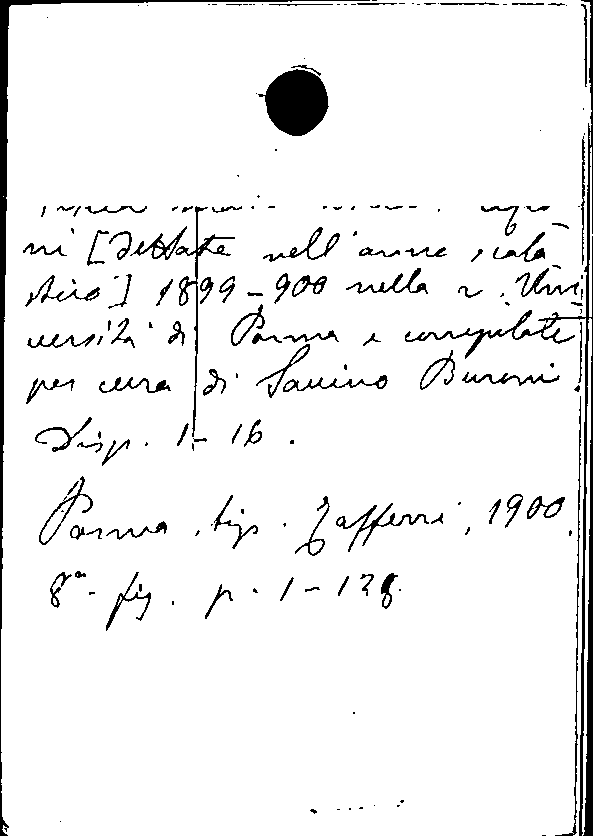 ni [dettate nell'anno scola
stico] 1899-900 nella r. Uni
versità di Parma e compilate
per cura di Savino Buroni.
Disp. 1-16.
Parma, tip. Zafferri, 1900.
8° fig. p. 1-128.